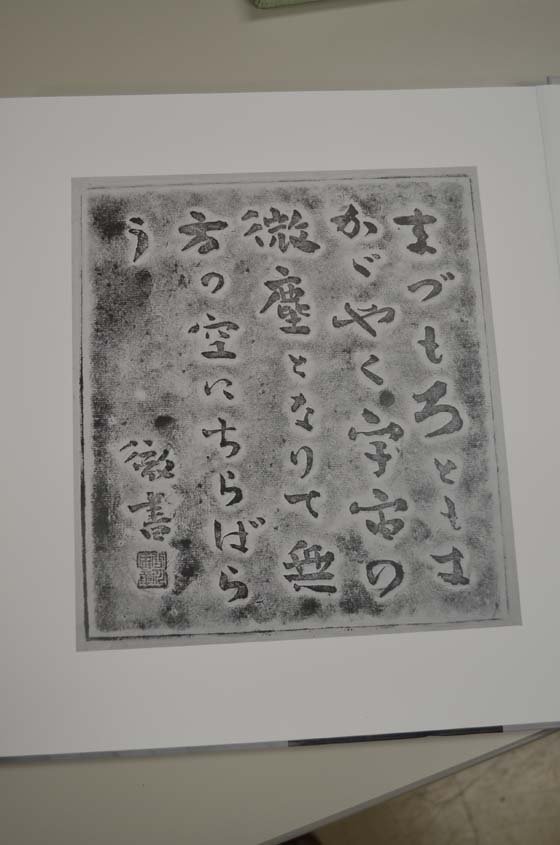 まづもろともに
かゞやく宇宙の
微塵となりて無
方の空にちらばら
う
徹書